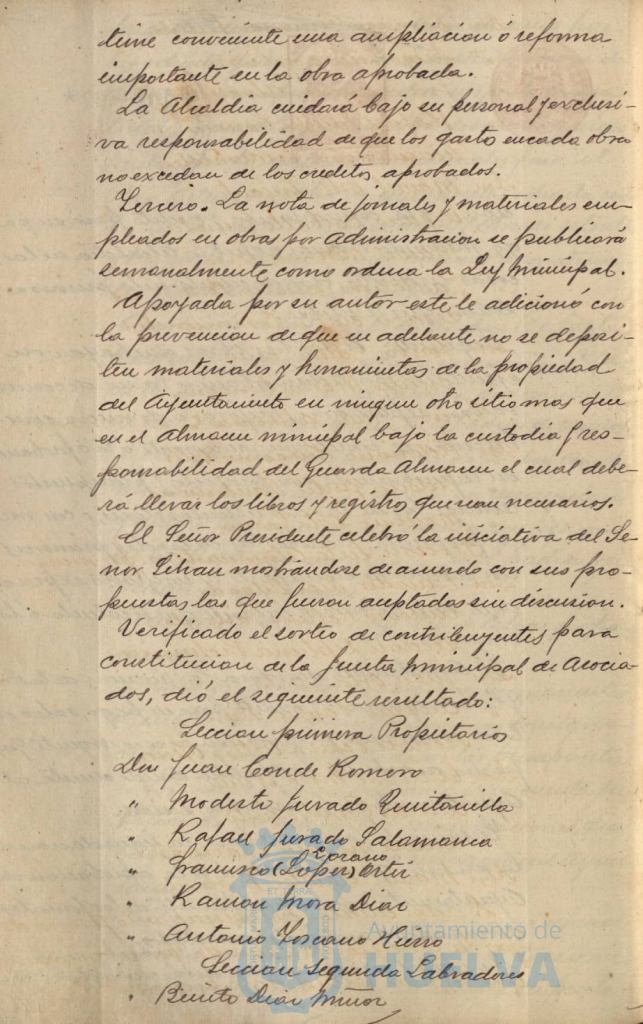 time conveniente una ampliacion ó reforma
importante en la obra aprobada.
La Alcaldia cuidará bajo su personal y exclusi-
va responsabilidad de que los gastos en cada obra
no excedan de los creditos aprobados.
Tercero. La nota de jornales y materiales em-
pleados en obras por administracion se publicará
semanalmente como ordena la Ley Municipal.
Apoyada por su autor este le adicionó con
la prevencion de que en adelante no se deposi-
ten materiales y herramientas de la propiedad
del Ayuntamiento en ningun otro sitio mas que
en el Almacen municipal bajo la custodia y res-
ponsabilidad del Guarda Almacen el cual debe-
rá llevar los libros y registros que sean necesarios.
El Señor Presidente celebró la iniciativa del Se-
ñor Liñan mostrándose de acuerdo con sus pro-
puestas las que fueron aceptadas sin discusion.
Verificado el sorteo de contribuyentes para
constitucion de la Junta Municipal de Asocia-
dos, dió el siguiente resultado:
Seccion primera Propietarios
Don Juan Conde Romero
" Modesto Jurado Quintanilla
" Rafael Jurado Salamanca
" Francisco (Lopez) Ortiz
" Ramon Mora Diaz
" Antonio Toscano Hierro
Seccion segunda Labradores
" Benito Diaz Muñoz
Ayuntamiento de
HUELVA